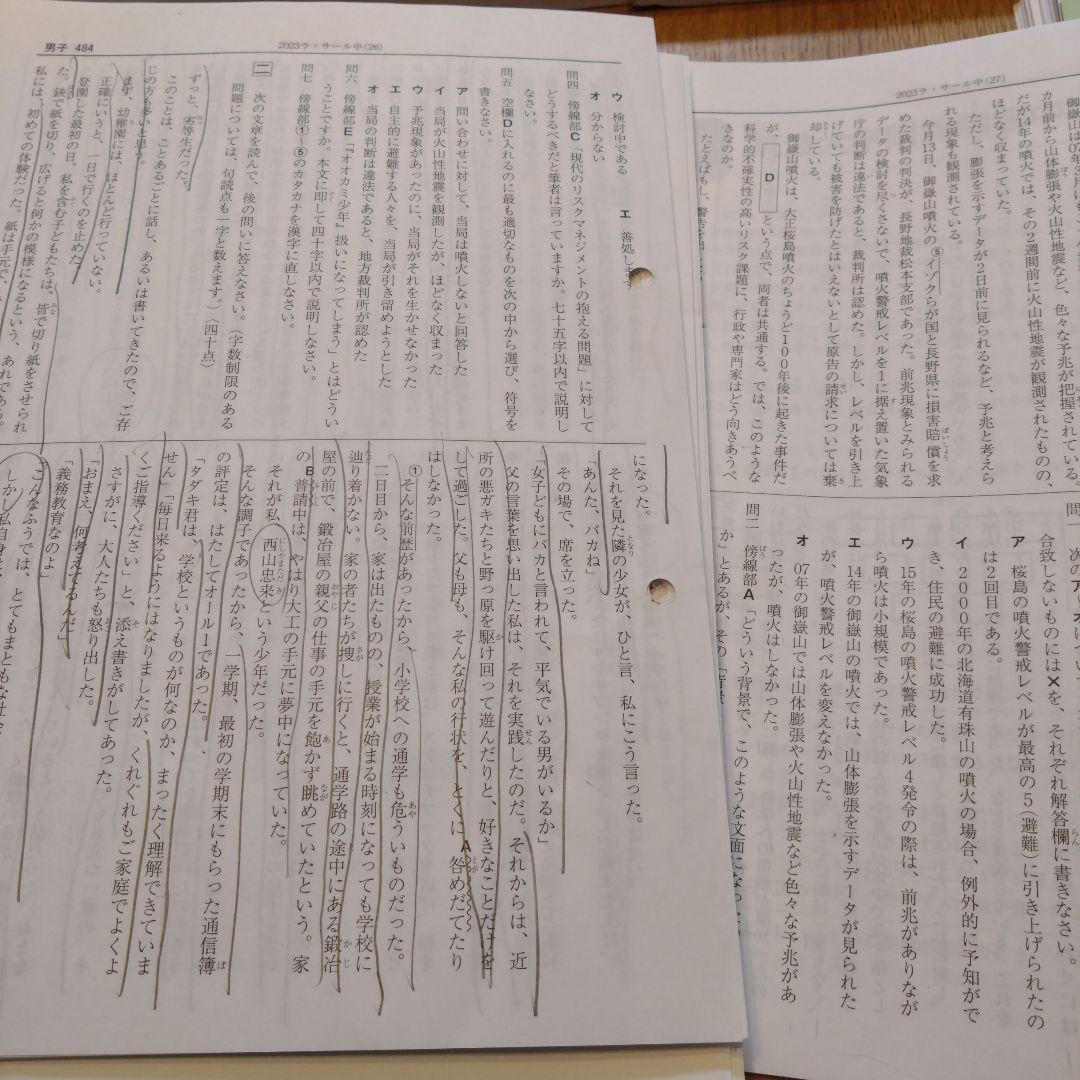 男子 484
2023ラ・サール中(26)
ウ 検討中である
エ 善処します
オ 分からない
問四 傍線部C「現代のリスクマネジメントの抱える問題」に対して
どうするべきだと筆者は言っていますか。七十五字以内で説明し
なさい。
問五 空欄Dに入れるのに最も適切なものを次の中から選び、符号を
書きなさい。
ア 問い合わせに対して、当局は噴火しないと回答した
イ 当局が火山性地震を観測したが、ほどなく収まった
ウ 予兆現象があったのに、当局がそれを生かせなかった
エ 自主的に避難する人々を、当局が引き留めようとした
オ 当局の判断は違法であると、地方裁判所が認めた
問六 傍線部E「『オオカミ少年』扱いになってしまう」とはどうい
うことですか。本文に即して四十字以内で説明しなさい。
問七 傍線部①~⑤のカタカナを漢字に直しなさい。
二 次の文章を読んで、後の問いに答えなさい。(字数制限のある
問題については、句読点も一字と数えます。)(四十点)
ずっと、劣等生だった。
このことは、ことあるごとに話し、あるいは書いてきたので、ご存
じの方も多いと思う。
まず、幼稚園には、ほとんど行っていない。
正確にいうと、一日で行くのを止めた。
登園した最初の日、私を含む子どもたちは、皆で切り紙をさせられ
た。鋏で紙を切り、広げると何かの模様になるという、あれである。
私には、初めての体験だった。紙は手元で、
になった。
それを見た隣の少女が、ひと言、私にこう言った。
「あんた、バカね」
その場で、席を立った。
「女子どもにバカと言われて、平気でいる男がいるか」
父の言葉を思い出した私は、それを実践したのだ。それからは、近
所の悪ガキたちと野っ原を駆け回って遊んだりと、好きなことだけを
して過ごした。父も母も、そんな私の行状を、とくにA咎めだてたり
はしなかった。
①そんな前歴があったから、小学校への通学も危ういものだった。
二日目から、家は出たものの、授業が始まる時刻になっても学校に
辿り着かない。家の者たちが捜しに行くと、通学路の途中にある鍛冶
屋の前で、鍛冶屋の親父の仕事の手元を飽かず眺めていたという。家
のB普請中は、やはり大工の手元に夢中になっていた。
それが私、西山忠来という少年だった。
そんな調子であったから、一学期、最初の学期末にもらった通信簿
の評定は、はたしてオール1であった。
「タダキ君は、学校というものが何なのか、まったく理解できていま
せん」「毎日来るようにはなりましたが、くれぐれもご家庭でよくよ
くご指導ください」と、添え書きがしてあった。
さすがに、大人たちも怒り出した。
「おまえ、何考えてるんだ」
「義務教育なのよ」
こんなふうでは、とてもまともな社会
しかし私自身は、
2023ラ・サール中(27)
カ月前から山体膨張や火山性地震など、色々な予兆が把握されていた。
だが14年の噴火では、その2週間前に火山性地震が観測されたものの、
ほどなく収まっていた。
ただし、膨張を示すデータが2日前に見られるなど、予兆と考えら
れる現象も観測されている。
今月13日、御嶽山噴火の⑤イゾクらが国と長野県に損害賠償を求
めた裁判の判決が、長野地裁松本支部であった。前兆現象とみられる
データの検討を尽くさないで、噴火警戒レベルを1に据え置いた気象
庁の判断は違法であると、裁判所は認めた。しかし、レベルを引き上
げていても被害を防げたとはいえないとして原告の請求については棄
却している。
御嶽山噴火は、大正桜島噴火のちょうど100年後に起きた事件だ
が、 D という点で、両者は共通する。では、このような
科学的不確実性の高いリスク課題に、行政や専門家はどう向きあうべ
きなのか。
たとえばもし、警告を出し
問一
合致しないものには×を、それぞれ解答欄に書きなさい。
ア 桜島の噴火警戒レベルが最高の5(避難)に引き上げられたの
は2回目である。
イ 2000年の北海道有珠山の噴火の場合、例外的に予知がで
き、住民の避難に成功した。
ウ 15年の桜島の噴火警戒レベル4発令の際は、前兆がありなが
ら噴火は小規模であった。
エ 14年の御嶽山の噴火では、山体膨張を示すデータが見られた
が、噴火警戒レベルを変えなかった。
オ 07年の御嶽山では山体膨張や火山性地震など色々な予兆があ
ったが、噴火はしなかった。
問二 傍線部A「どういう背景で、このような文面になった
か」とあるが、その「背景